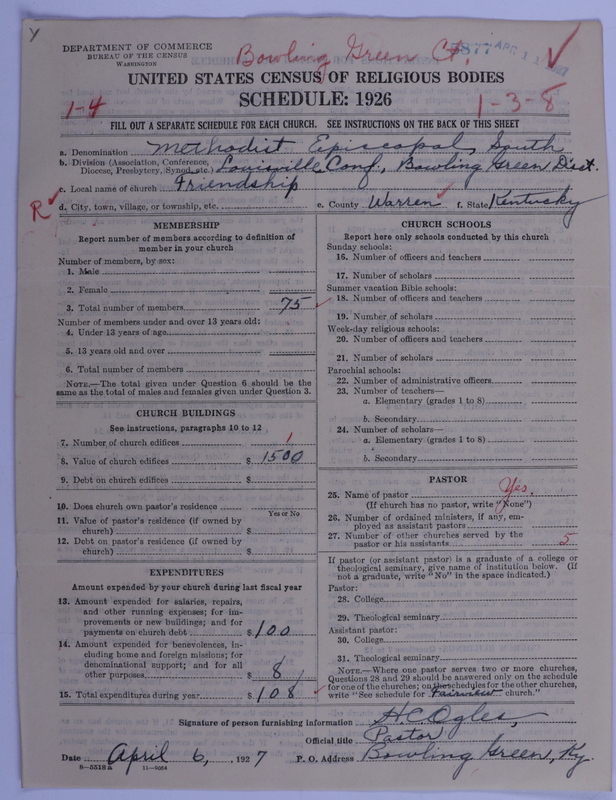 DEPARTMENT OF COMMERCE
BUREAU OF THE CENSUS
WASHINGTON
Bowling Green Ct.
UNITED STATES CENSUS OF RELIGIOUS BODIES
SCHEDULE: 1926
1-4
1-3-8
FILL OUT A SEPARATE SCHEDULE FOR EACH CHURCH. SEE INSTRUCTIONS ON THE BACK OF THIS SHEET
a. Denomination Methodist Episcopal, South
b. Division (Association, Conference, Diocese, Presbytery, Synod, etc.) Louisville Conf, Bowling Green Dist.
c. Local name of church Friendship
R
d. City, town, village, or township, etc. e. County Warren f. State Kentucky
MEMBERSHIP
Report number of members according to definition of
member in your church
Number of members, by sex:
1. Male
2. Female
3. Total number of members 75
Number of members under and over 13 years old:
4. Under 13 years of age
5. 13 years old and over
6. Total number of members
NOTE.—The total given under Question 6 should be the
same as the total of males and females given under Question 3.
CHURCH BUILDINGS
See instructions, paragraphs 10 to 12
7. Number of church edifices 1
8. Value of church edifices $ 1500
9. Debt on church edifices $
10. Does church own pastor's residence
Yes or No
11. Value of pastor's residence (if owned by
church) $
12. Debt on pastor's residence (if owned by
church) $
EXPENDITURES
Amount expended by your church during last fiscal year
13. Amount expended for salaries, repairs,
and other running expenses; for im-
provements or new buildings; and for
payments on church debt $ 100
14. Amount expended for benevolences, in-
cluding home and foreign missions; for
denominational support; and for all
other purposes $ 8
15. Total expenditures during year $ 108
CHURCH SCHOOLS
Report here only schools conducted by this church
Sunday schools:
16. Number of officers and teachers
17. Number of scholars
Summer vacation Bible schools:
18. Number of officers and teachers
19. Number of scholars
Week-day religious schools:
20. Number of officers and teachers
21. Number of scholars
Parochial schools:
22. Number of administrative officers
23. Number of teachers—
a. Elementary (grades 1 to 8)
b. Secondary
24. Number of scholars—
a. Elementary (grades 1 to 8)
b. Secondary
PASTOR
25. Name of pastor Yes.
(If church has no pastor, write "None")
26. Number of ordained ministers, if any, em-
ployed as assistant pastors
27. Number of other churches served by the
pastor or his assistants 5
If pastor (or assistant pastor) is a graduate of a college or
theological seminary, give name of institution below. (If
not a graduate, write "No" in the space indicated.)
Pastor:
28. College
29. Theological seminary
Assistant pastor:
30. College
31. Theological seminary
NOTE.—Where one pastor serves two or more churches,
Questions 28 and 29 should be answered only on the schedule
for one of the churches; on the schedules for the other churches,
write "See schedule for church."
Signature of person furnishing information H C Ogles,
Official title Pastor
Date April 6, 1927 P. O. Address Bowling Green, Ky.
8—5518a 11—9064